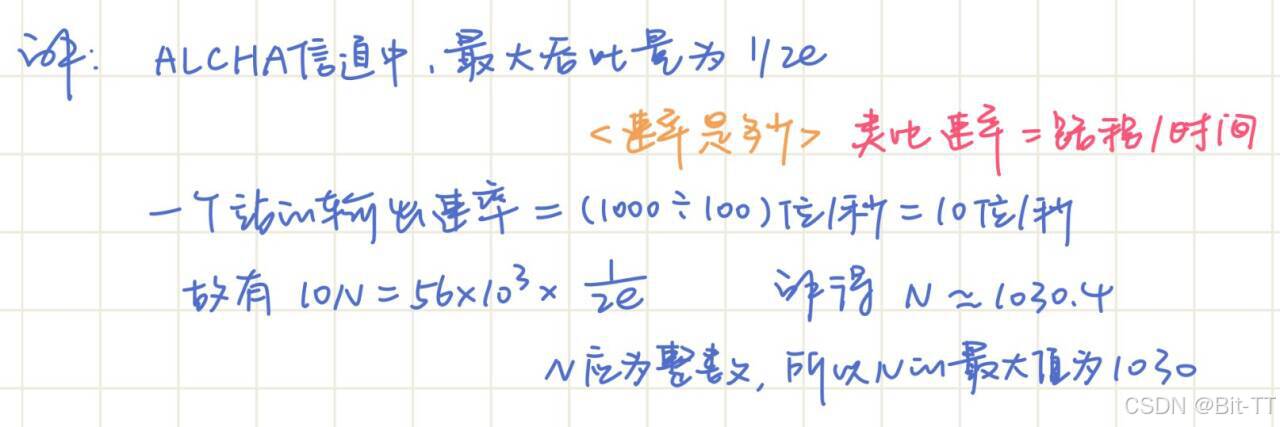 解: ALCHA信道中,最大吞吐量为 1/2e
<速率是多少> 类比速率=路程/时间
一个站的输出速率=(1000÷100)位/秒=10位/秒
故有 10N=56×10³× 1/2e 解得 N≈1030.4
N应为整数,所以N的最大值为1030
CSDN @Bit-TT